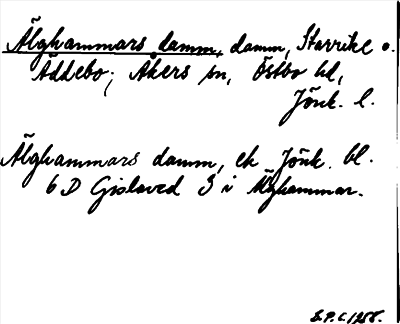 Älghammars damm, damm, Starrike o.
Äddebo; Åkers sn, Östbo hd,
Jönk. l.
Älghammars damm, ek Jönk. bl.
6 D Gislaved S i Älghammar.